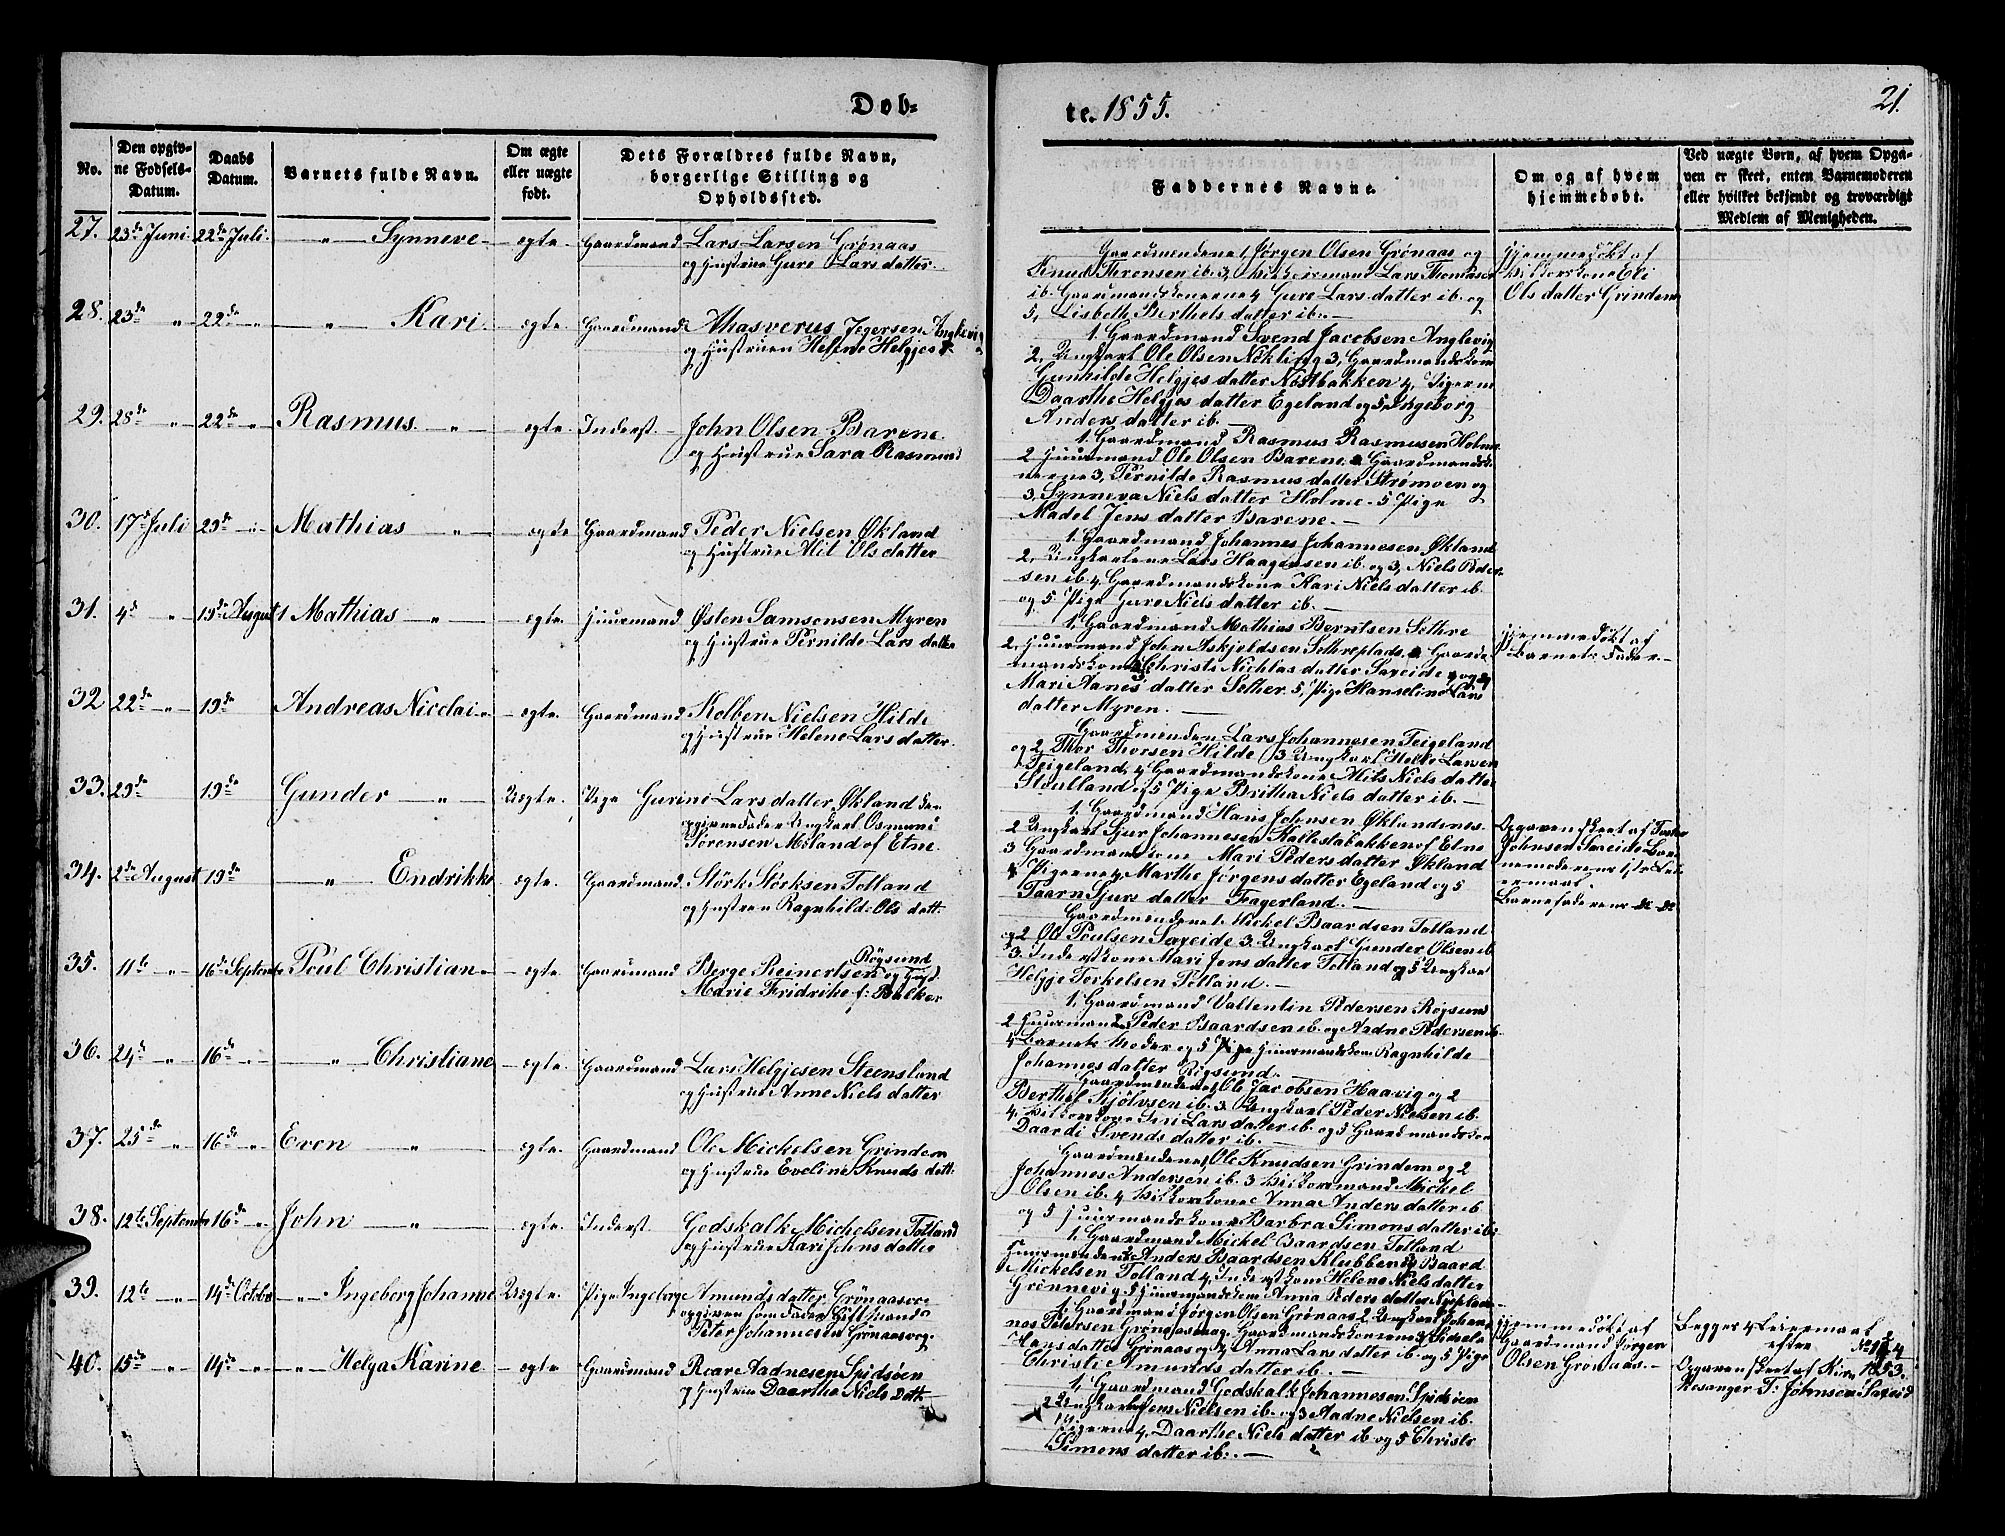 Døb-
No.
Den opgiv-
ne Fødsels-
Datum.
Daabs
Datum.
Barnets fulde Navn.
Om ægte
eller uægte
født.
Dets Forældres fulde Navn,
borgerlige Stilling og
Opholdssted.
27. 23de Juni 22de Juli — „ — Synneve — ægte. Gaardmand Lars Larsen Grønaas
og Hustrue Gure Lars datter.
28. 23de „ 22de „ — „ — Kari. — ægte. Gaardmand Ahasverus Jegersen Anglevig
og Hustruen Helene Helgjes d
29. 28de „ 22de „ Rasmus — „ — ægte. Inderst John Olsen Barene.
og Hustrue Sara Rasmusd
30. 17d Juli 29de „ Mathias — „ — ægte Gaardmand Peder Nielsen Økland
og Hustrue Alit Ols datter
31. 4d „ 19de August Mathias — „ — ægte. Huusmand Østen Samsonsen Myren
og Hustrue Pernilde Lars datter
32 22de „ 19de Andreas Nicolai „ — ægte. Gaardmand Kolben Nielsen Hilde
og Hustrue Helene Lars datter.
33. 29de 19de Gunder — „ — Uægte. Pige Gurine Lars datter Økland den
opgivne Fader Ungkarl Osmund
Sørensen Møland af Etne.
34. 2de August 19de — „ — Endrikke ægte. Gaardmand Störk Störksen Totland
og Hustruen Ragnhild Ols datt:
35. 11te „ 16de Septembr Poul Christian „ — ægte. Gaardmand Berge Reinertsen Røgsund og Hust
Marie Fridrike f: Balker
36. 24de „ 16de „ — „ — Christiane — ægte. Gaardmand Lars Helgjesen Steensland
og Hustrue Anne Niels datter
37. 25de „ 16de „ Even — „ — ægte. Gaardmand Ole Mickelsen Grindem
og Hustrue Eveline Knuds datt:
38. 12te Septembr 16de „ John — „ — ægte. Inderst Godskalk Michelsen Totland
og Hustrue Kari Johns datter
39. 12te „ 14de Octobr — „ — Ingeborg Johanne Uægte. Pige Ingeborg Amunds datter Grønaasvog
opgiven som Fader Gift Mand
Peter Johannesen Grønaasvog.
40. 15de „ 14de „ — „ — Helga Karine — ægte. Gaardmand Roar Aadnesen Spidsøen
og Hustrue Daarthe Niels Datt.
te. 1855.
21.
Faddernes Navne.
Om og af hvem
hjemmedøbt.
Ved uægte Børn, af hvem Opga-
ven er skeet, enten Barnemoderen
eller hvilket bekjendt og troværdigt
Medlem af Menigheden.
Gaardmændene 1, Jørgen Olsen Grønaas og
Knud Thrensen ib. 3, Lars Thomasen
ib. Gaardmandskonerne 4 Gure Lars datter ib. og
5, Lisbeth Berthels datter ib. —
Hjemmedøbt af
Eli
Ols datter Grindem
1. Gaardmand Svend Jacobsen Anglevig
2, Ungkarl Ole Olsen Nökling 3, Gaardmandskone
Gunhilde Helgjes datter Nöstbakken 4, Pigerne
Daarthe Helgjes datter Egeland og 5, Ingeborg
Anders datter ib. —
1. Gaardmand Rasmus Rasmusen Holme
2 Huusmand Ole Olsen Barene, Gaardmandsko-
nerne 3, Pernilde Rasmus datter Strømoen og
3, Synneva Niels datter Holme. 5 Pige
Madel Jens datter Barene. —
1. Gaardmand Johannes Johannesen Økland
2, Ungkarlene Lars Haagensen ib. og 3, Niels Peder-
sen ib. 4 Gaardmandskone Kari Niels datter ib.
og 5. Pige Gure Niels datter ib. —
1. Gaardmand Mathias Berntsen Sethre
2, Huusmand John Askjeldsen Sethreplads, Gaard-
mandskone Christi Nichlas datter Saxeide og
Mari Aanes datter Sether. 5, Pige Hanseline Lars
datter Myren. —
Hjemmedøbt af
Barnets Fader. —
Gaardmænden Lars Johannesen Teigeland
og 2, Thor Thorsen Hilde 3 Ungkarl Helle Larsen
Teigeland, 4 Gaardmandskone Alits Niels datter
Stoulland og 5 Pige Britha Niels datter ib. —
1. Gaardmand Hans Johnsen Øklandnes.
2 Ungkarl Sjur Johannesen Kallestabakken af Etne
3 Gaardmandskone Mari Peders datter Økland
4 Pigerne 4 Marthe Jørgens datter Egeland og 5
Taarn Sjurs datter Fagerland. —
Opgaven skeet af
Johnsen Saxeide Bar-
nemoderens 1ste Lei-
ermaal.
Barnefaderens de de
Gaardmændene 1. Mickel Baardsen Totland
og 2 Ole Poulsen Saxeide 3. Ungkarl Gunder Olsen ib
3. Inderstkone Mari Jens datter Totland og 5 Ungkarl
Helgje Torkelsen Totland. —
1, Gaardmand Vallentin Pedersen Røgsund
2 Huusmand Peder Baardsen ib. og Aadne Pedersen ib.
4 Barnets Moder og 5 Pige Huusmandskone Ragnhilde
Johannes datter Rigsund. —
Gaardmændene 1, Ole Jacobsen Haavig og 2
Berthel Kjölvsen ib. 3. Ungkarl Peder Nielsen ib.
4. Sini Lars datter ib. og 5 Gaardmandskone
Daardi Svends datter ib. —
Gaardmændene 1, Ole Knudsen Grindem og 2
Johannes Andersen ib. 3 Mickel
Olsen ib. 4 Anna Anders datter ib.
og 5 Huusmandskone Barbra Simons datter ib:
1. Gaardmand Mickel Baardsen Totland
Huusmændene 2 Anders Baardsen Klubben og 3 Baard
Mickelsen Totland 4, Inderstkone Helene Niels datter
Grønnevig 5 Huusmandskone Anna Peders datter
1, Gaardmand Jørgen Olsen Grønaas 2 Ungkarl Johan-
nes Petersen Grønaasvog. Gaardmandskonerne 3
Hans datter Grønaas og 4 Anna Lars datter ib. og 5 Pige
Christi Amunds datter ib. —
Hjemmedøbt af
Gaardmand Jørgen
Olsen Grønaas. —
Begges 4 Leiermaal
efter
1853.
Opgaven skeet af Kir-
kesanger T: Johnsen Saxeid
1, Gaardmand Godskalk Johannesen Spidsøen
2 Ungkarlene Jens Nielsen ib. og 3 Aadne Nielsen ib.
Pigerne 4, Daarthe Niels datter ib og 5 Christi
Simons datter ib:. —